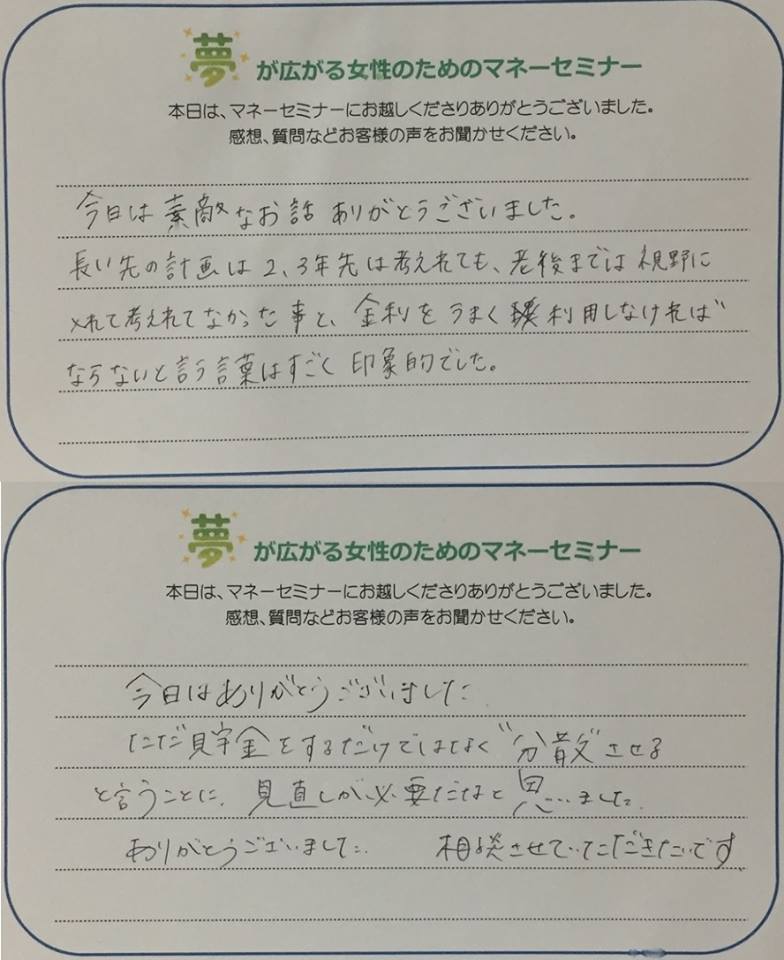 夢が広がる女性のためのマネーセミナー
本日は、マネーセミナーにお越しくださりありがとうございました。
感想、質問などお客様の声をお聞かせください。
今日は素敵なお話ありがとうございました。
長い先の計画は2、3年先は考えれても、老後までは視野に
入れて考えれてなかった事と、金利をうまく利用しなければ
ならないと言う言葉はすごく印象的でした。
夢が広がる女性のためのマネーセミナー
本日は、マネーセミナーにお越しくださりありがとうございました。
感想、質問などお客様の声をお聞かせください。
今日はありがとうございました
ただ貯金をするだけではなく"分散"させる
と言うことに、見直しが必要だなと思いました。
ありがとうございました。 相談させていただきたいです